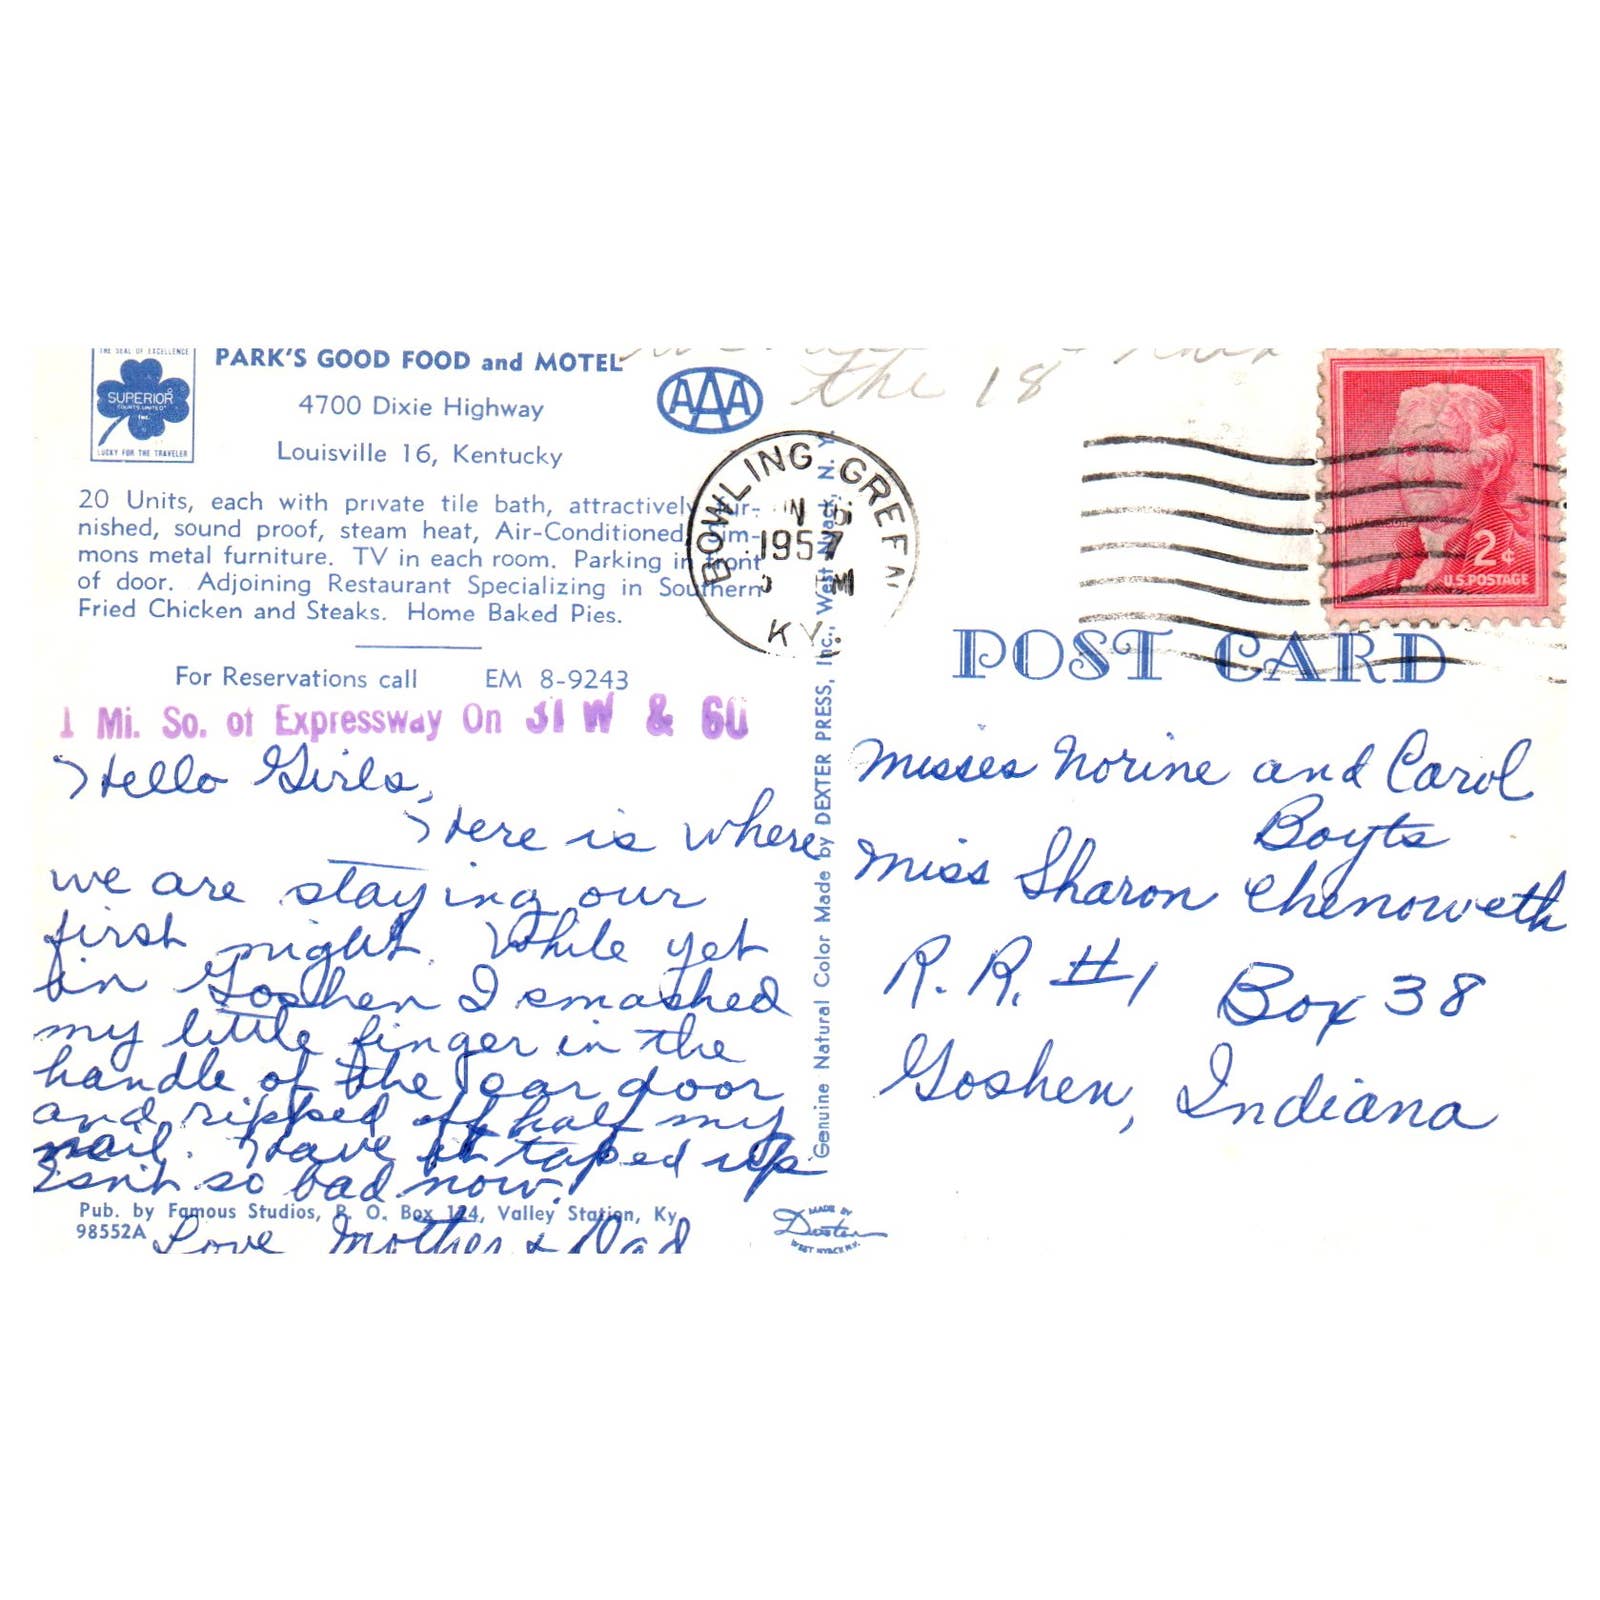 THE SEAL OF EXCELLENCE
SUPERIOR
COURTS UNITED
INC.
LUCKY FOR THE TRAVELER
PARK'S GOOD FOOD and MOTEL
4700 Dixie Highway
Louisville 16, Kentucky
AAA
the 18
20 Units, each with private tile bath, attractively fur-
nished, sound proof, steam heat, Air-Conditioned, Sim-
mons metal furniture. TV in each room. Parking in front
of door. Adjoining Restaurant Specializing in Southern
Fried Chicken and Steaks. Home Baked Pies.
For Reservations call EM 8-9243
1 Mi. So. of Expressway On 31 W & 60
Hello Girls,
Here is where
we are staying our
first night. While yet
in Goshen I smashed
my little finger in the
handle of the car door
and ripped off half my
nail. Have it taped up
Isn't so bad now.
Love Mother & Dad
Pub. by Famous Studios, P. O. Box 124, Valley Station, Ky.
98552A
BOWLING GREEN
1957
M
KY.
Genuine Natural Color Made by DEXTER PRESS, Inc., West Nyack, N. Y.
MADE BY
Dexter
WEST NYACK N.Y.
2¢
U.S. POSTAGE
POST CARD
Misses Norine and Carol
Boyts
Miss Sharon Chenoweth
R. R. #1 Box 38
Goshen, Indiana